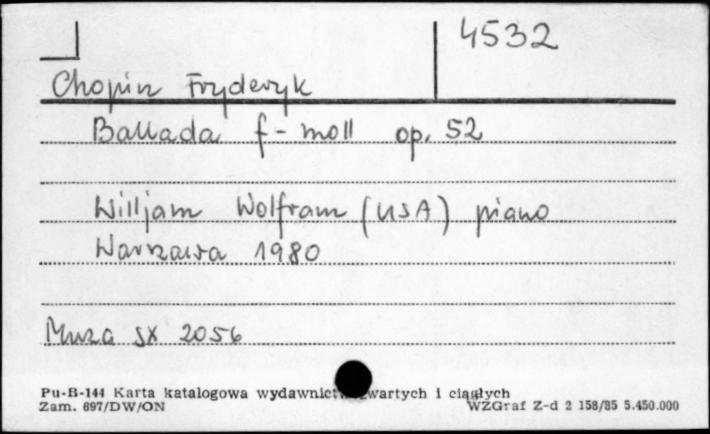 4532
Chopin Fryderyk
Ballada f-moll op. 52
Willijam Wolfram (USA) piano
Warszawa 1980
Muza SX 2056
Pu-B-144 Karta katalogowa wydawnictw zwartych i ciągłych
Zam. 697/DW/ON WZGraf Z-d 2 158/85 5.450.000